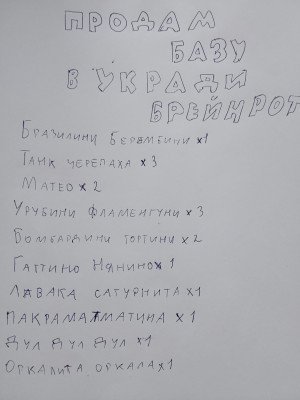 ПРОДАМ
БАЗУ
В УКРАДИ
БРЕЙНРОТ
Бразилини берембини x1
Танк черепаха x3
Матео x2
Урубини фламенгуни x3
Бомбардини тортини x2
Гаттино Нянино x1
Лавака сатурнита x1
Пакраматматина x1
Дул дул дул x1
Оркалита оркала x1